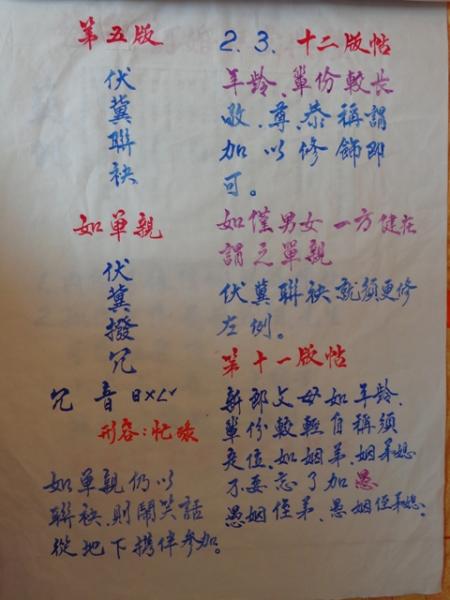 第五版
伏冀聯袂
如单親
伏冀撥冗
冗 音 ㄖㄨㄥˇ
形容：忙碌
如单親仍以
聯袂，則鬧笑話
從地下携伴参加。
2.3. 十二版帖
年龄、輩份較长
敬、尊、恭稱謂
加以修飾即
可。
如僅男女一方健在
謂之單親
伏冀聯袂就須更修
左例。
第十一版帖
新郎父母如年龄、
輩份較輕自稱須
定位、如姻弟、姻弟媳
不要忘了加愚
愚姻侄弟、愚姻侄弟媳。